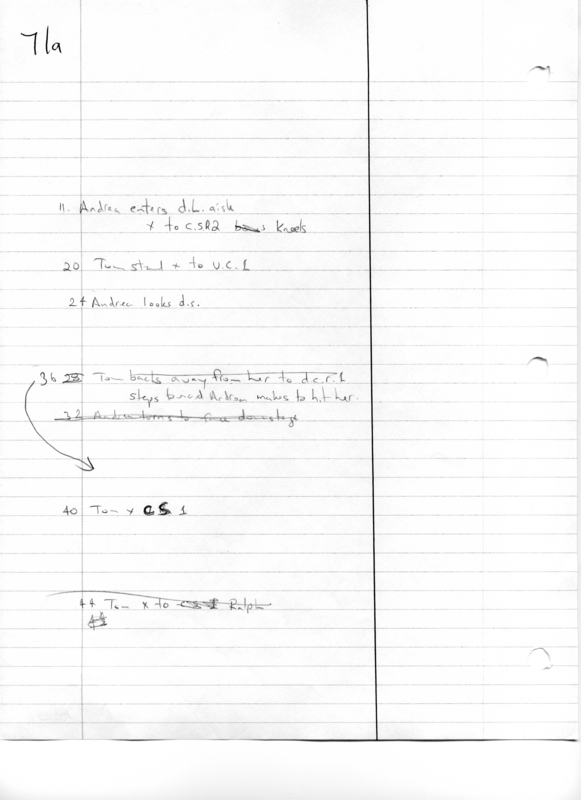 71a
11. Andrea enters d.L. aisle
x to C.S.R2 kneels
20 Tom stand x to U.C.1
24 Andrea looks d.s.
36 28 Tom backs away from her to d.c.r.1
steps toward Andrea makes to hit her.
32 Andrea turns to face downstage
40 Tom x CS 1
44 Tom x to CS 1 Ralph